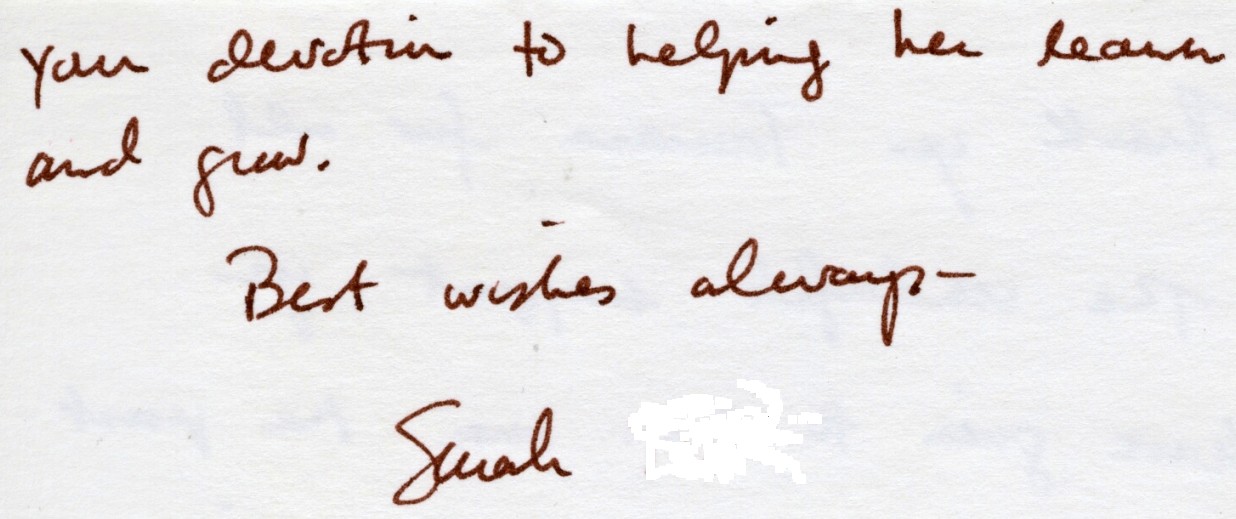 your devotion to helping her learn
and grow.
Best wishes always-
Sarah